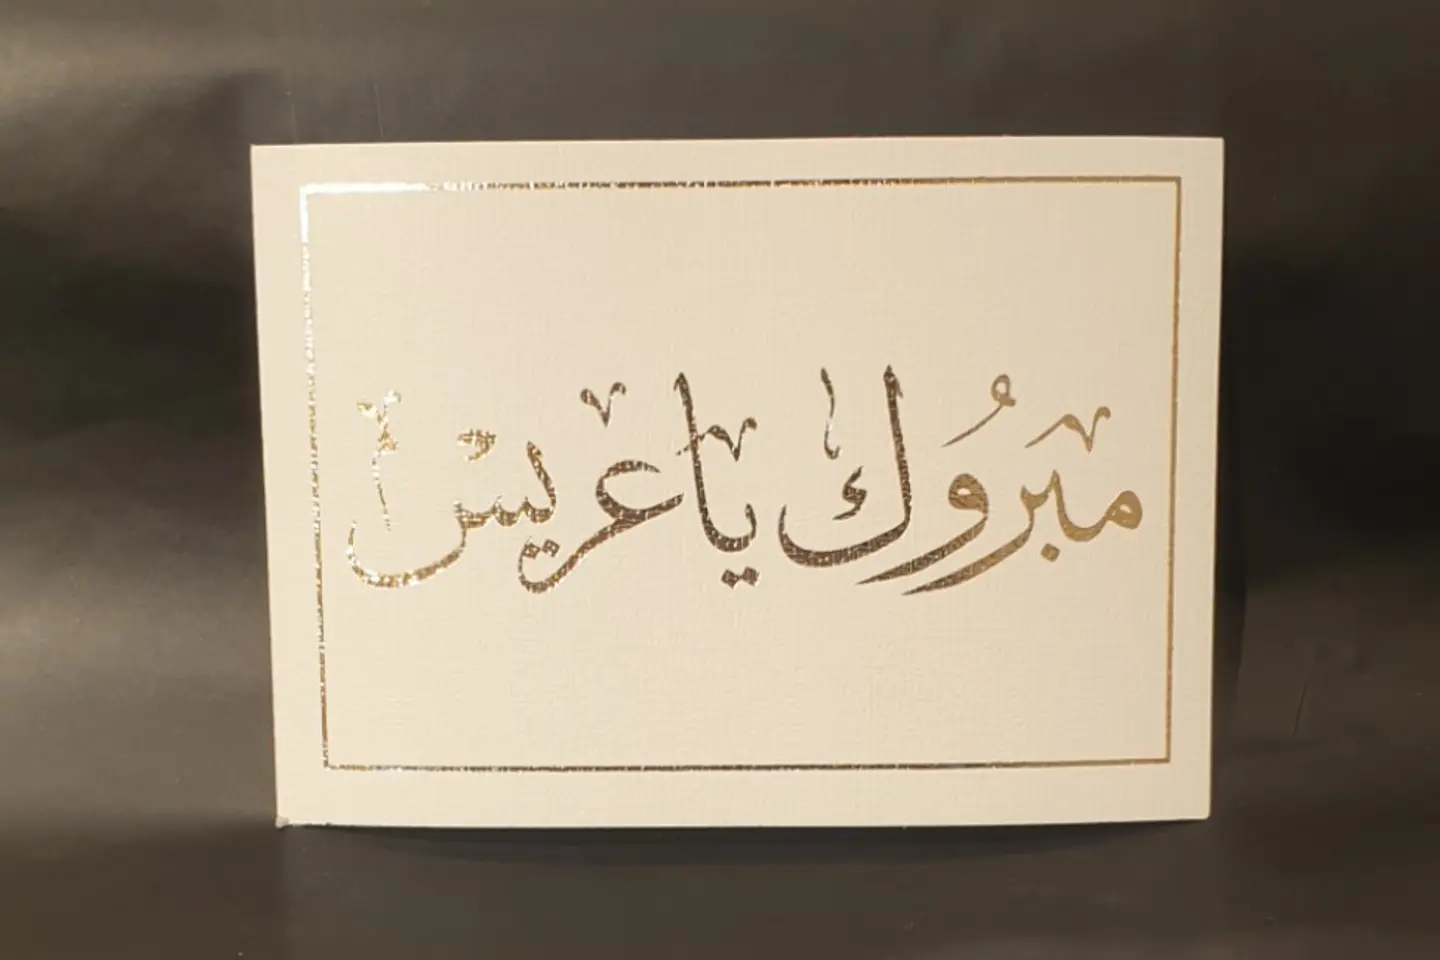 مبروك يا عريس